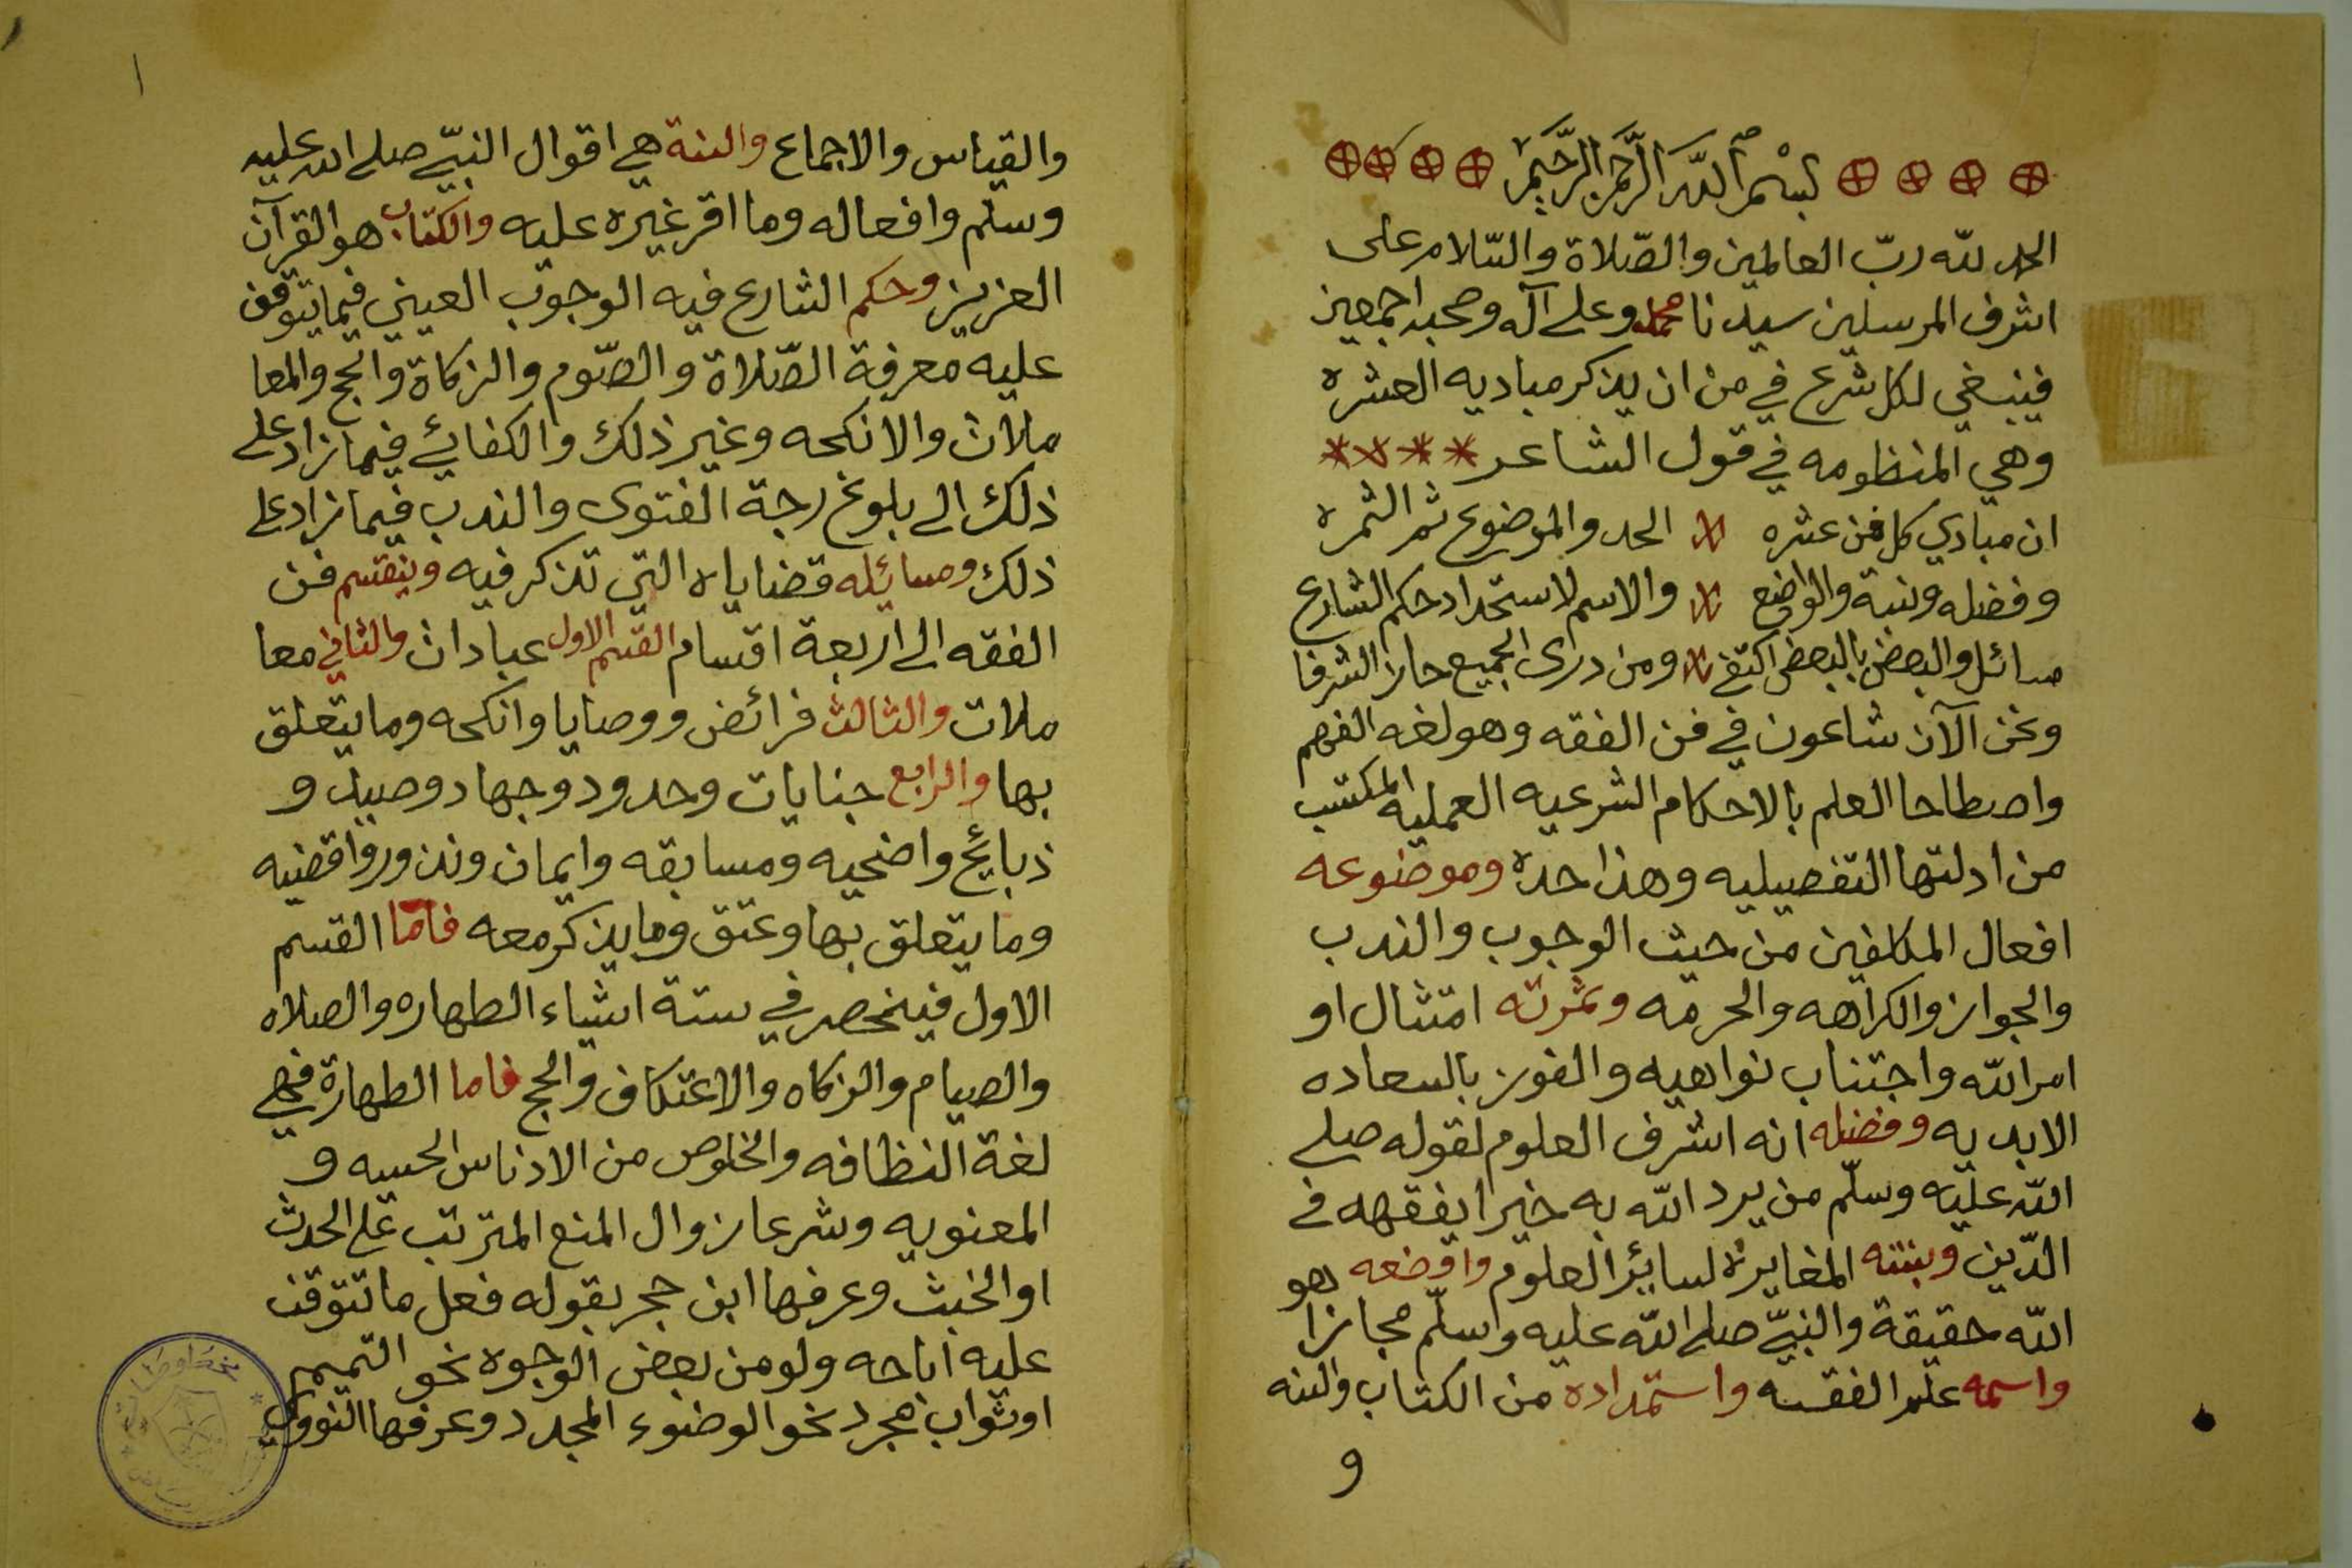 بسم الله الرحمن الرحيم
الحمد لله ربّ العالمين والصّلاة والسّلام على
اشرف المرسلين سيدنا محمد وعلى آله وصحبه اجمعين
فينبغي لكل شرع في من ان يذكر مباديه العشره
وهي المنظومه في قول الشاعر
ان مبادي كل فن عشره الحد والموضوع ثم الثمره
وفضله ونسبة والواضع والاسم لاستمداد حكم الشارع
مسائل والبعض بالبعض اكتفى ومن درى الجميع حاز الشرفا
ونحن الآن شاعون في فن الفقه وهو لغه الفهم
واصطاحا العلم بالاحكام الشرعيه العمليه المكتسب
من ادلتها التفصيليه وهذا حده وموضوعه
افعال المكلفين من حيث الوجوب والندب
والجواز والكراهه والحرمه وثمرته امتثال او
امر الله واجتناب نواهيه والفوز بالسعاده
الابديه وفضله انه اشرف العلوم لقوله صلى
الله عليه وسلّم من يرد الله به خيرا يفقهه في
الدّين ونسبته المغايرة لسائر العلوم واوضعه هو
الله حقيقة والنبيّ صلى الله عليه واسلّم مجازا
واسمه علم الفقه واستمداده من الكتاب والسنه
و
والقياس والاجماع والسنة هي اقوال النبيّ صلى الله عليه
وسلم وافعاله وما اقر غيره عليه والكتاب هو القرآن
العزيز وحكم الشارع فيه الوجوب العيني فيما يتوقف
عليه معرفة الصّلاة والصّوم والزكاة والحج والمعا
ملات والانكحه وغير ذلك والكفائي فيما زاد على
ذلك الى بلوغ رجة الفتوى والندب فيما زاد على
ذلك ومسائله قضاياه التي تذكر فيه وينقسم فن
الفقه الى اربعة اقسام القسم الاول عبادات والثاني معا
ملات والثالث فرائض ووصايا وانكحه وما يتعلق
بها والرابع جنايات وحدود وجهاد وصيد و
ذبايح واضحيه ومسابقه وايمان ونذور واقضيه
وما يتعلق بها وعتق وما يذكر معه فاما القسم
الاول فينحصر في ستة اشياء الطهاره والصلاه
والصيام والزكاه والاعتكاف والحج فاما الطهارة فهي
لغة النظافه والخلوص من الادناس الحسيه و
المعنويه وشرعا زوال المنع المترتب على الحدث
او الخبث وعرفها ابن حجر بقوله فعل ما تتوقف
عليه اباحه ولو من بعض الوجوه نحو التميم
او ثواب مجرد نحو الوضوء المجدد وعرفها النووي
مخطوطات